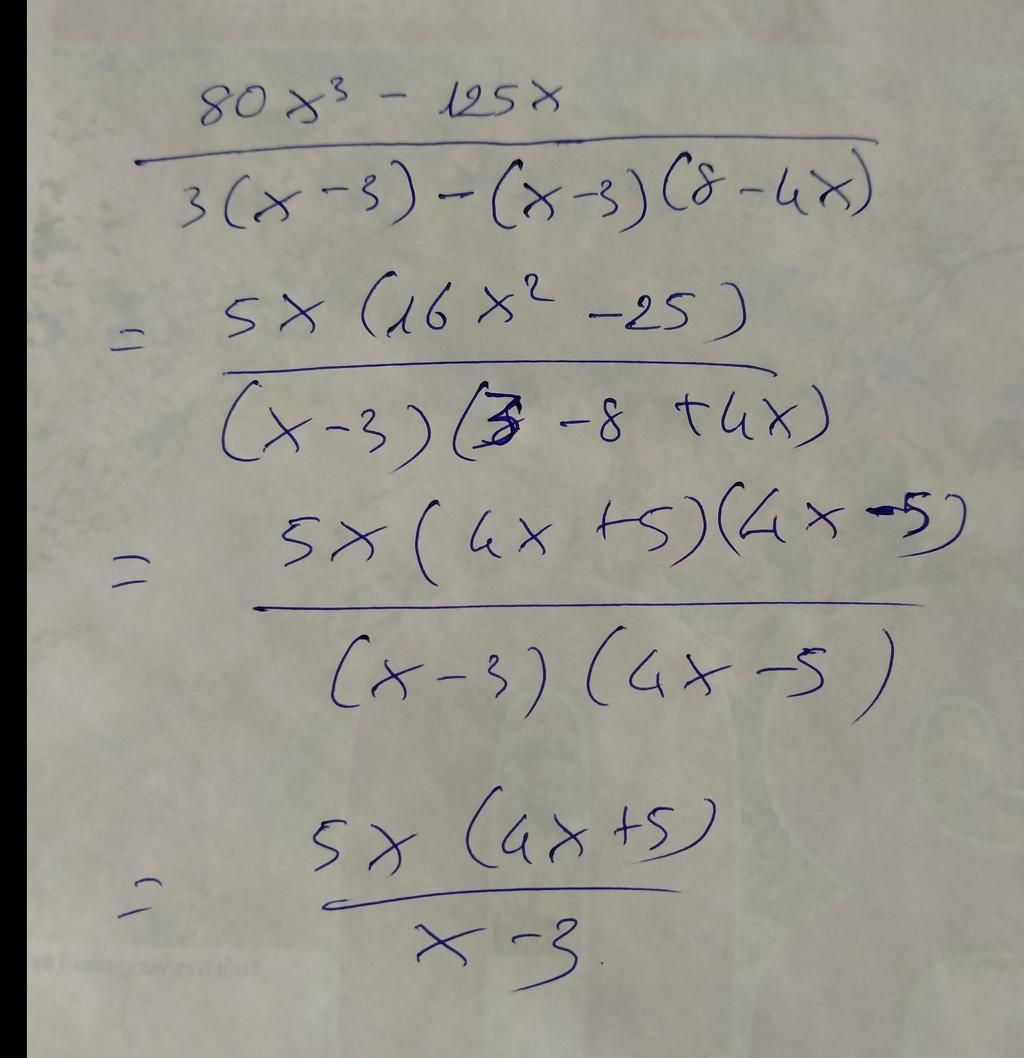 80x³ - 125x
3(x-3) - (x-3)(8-4x)
= 5x(16x² - 25)
(x-3)(3 - 8 + 4x)
= 5x(4x+5)(4x-5)
(x-3)(4x-5)
= 5x(4x+5)
x-3